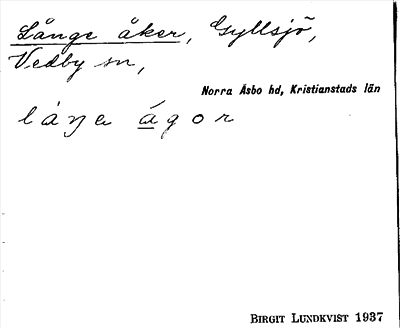 Långe åker, Gyllsjö,
Vedby sn,
Norra Åsbo hd, Kristianstads län
låŋa ágor
BIRGIT LUNDKVIST 1937